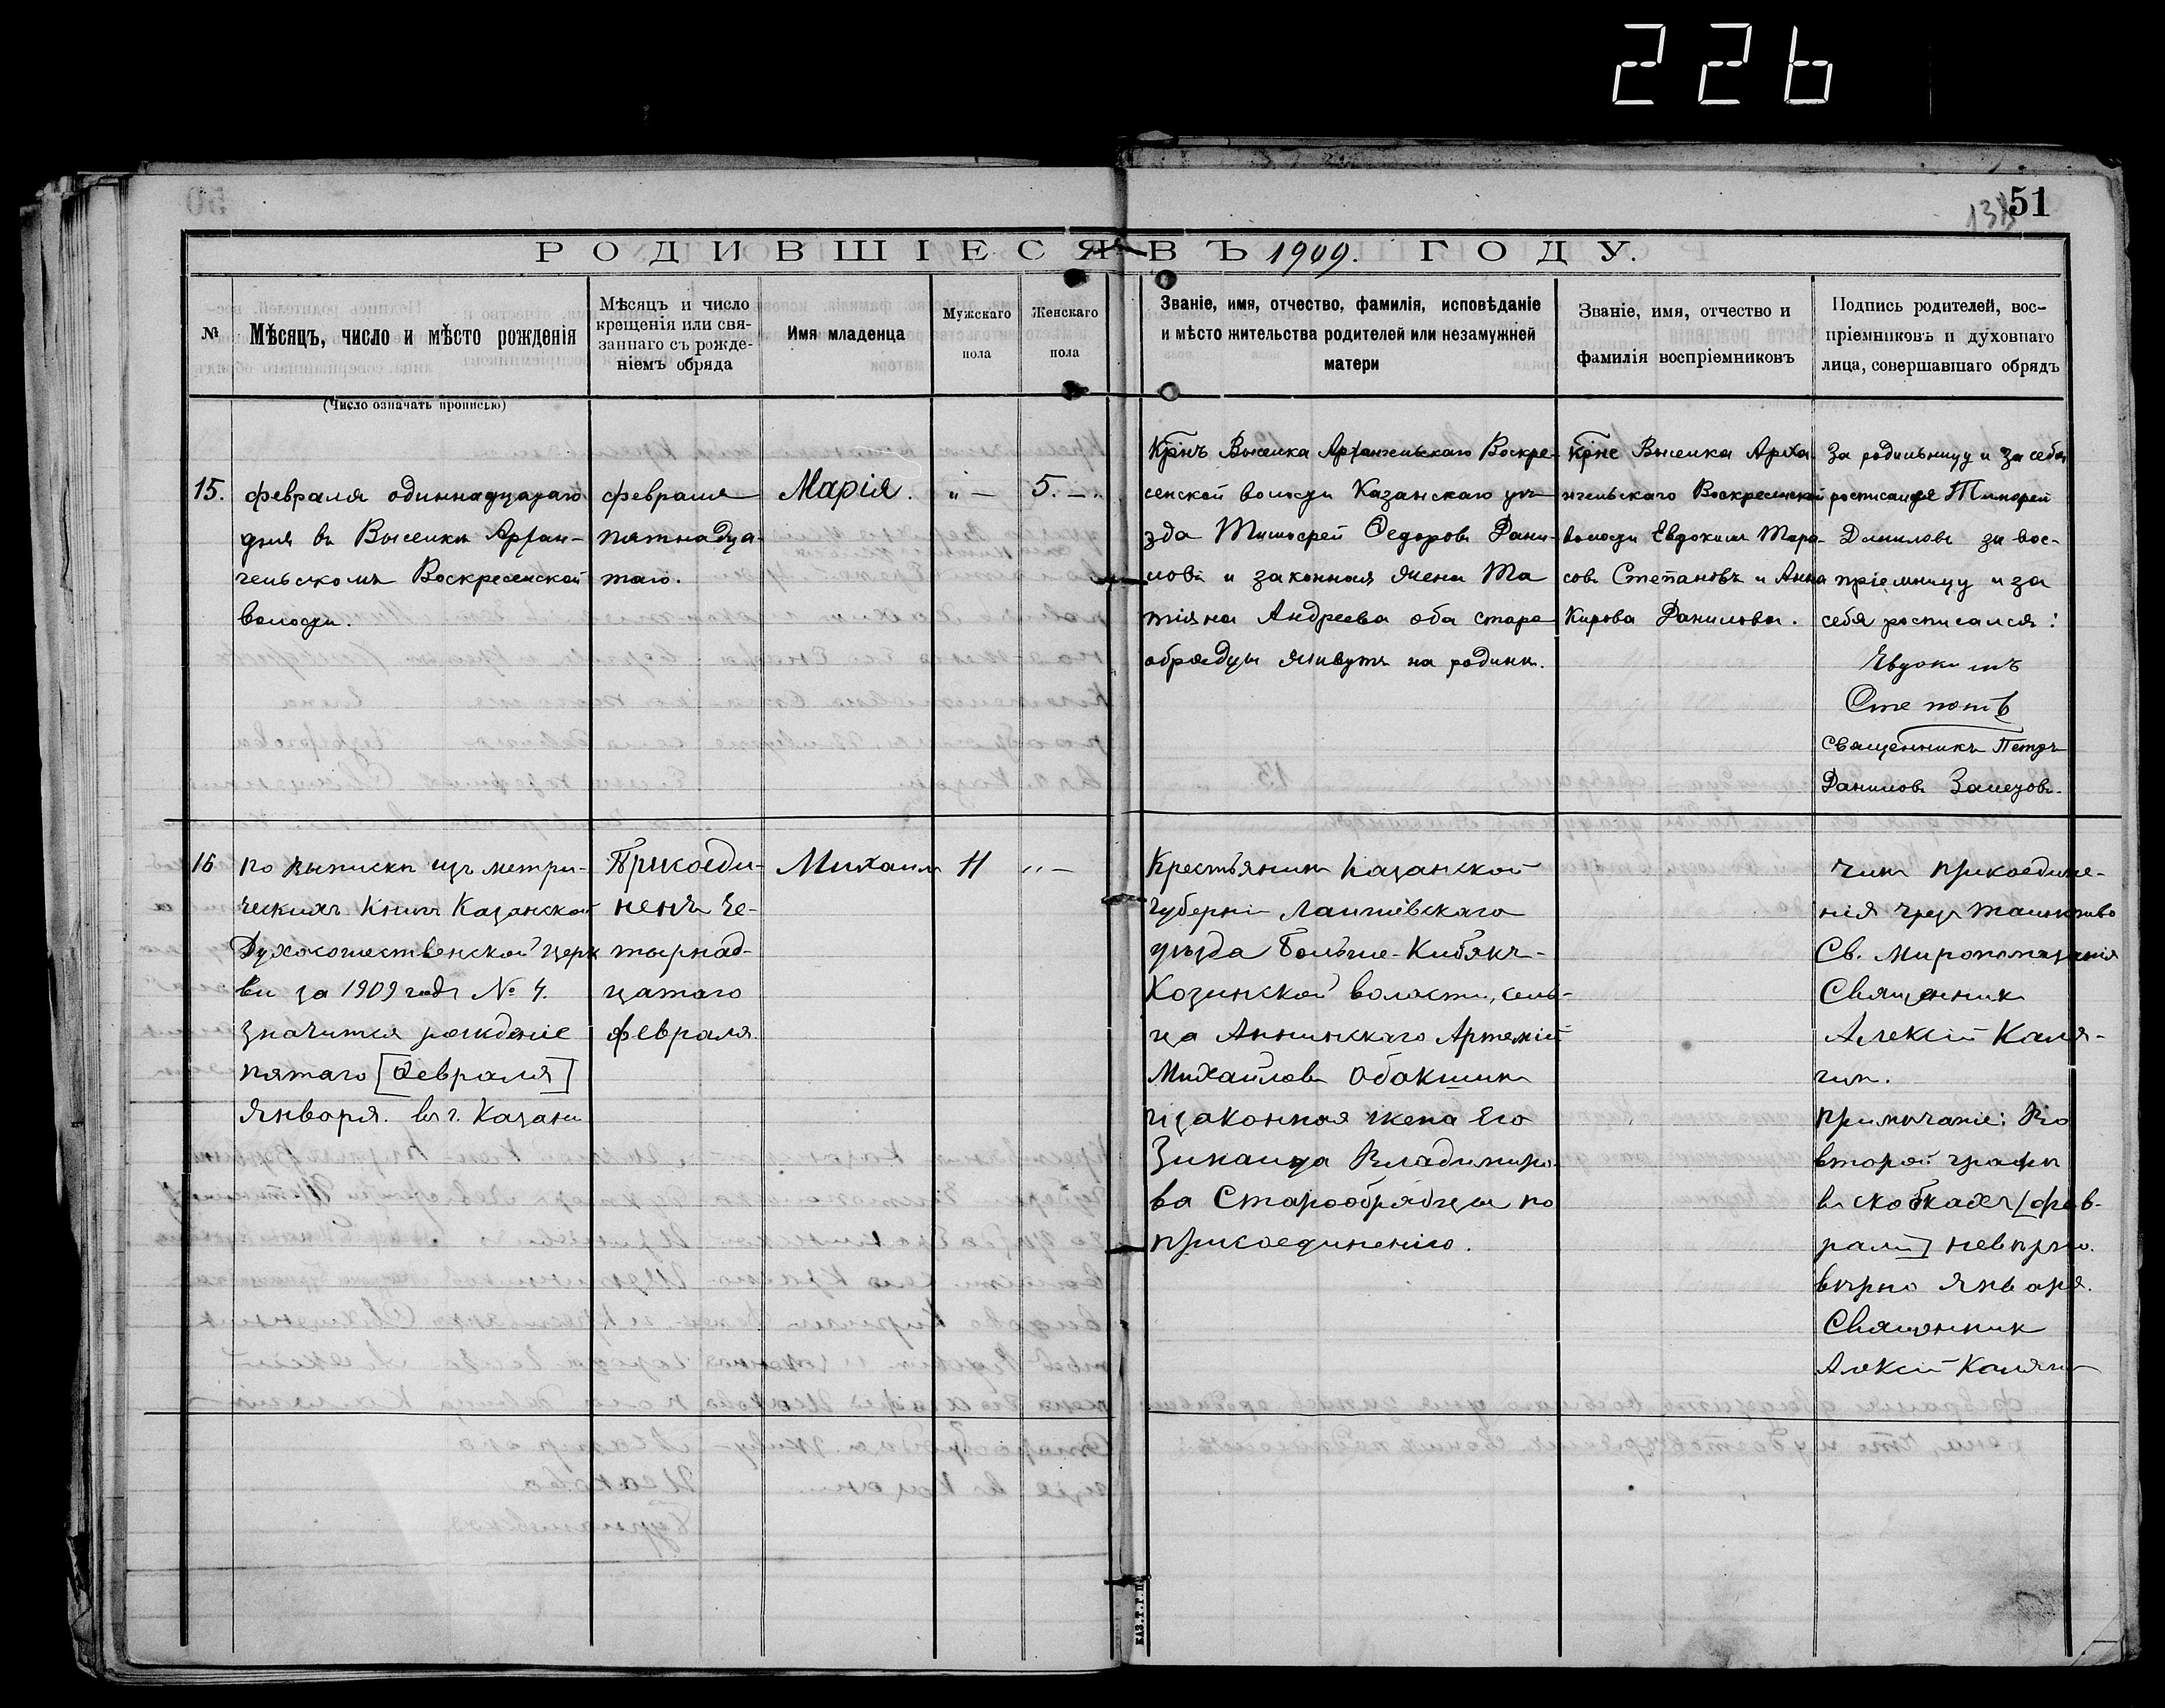 226
51
РОДИВШІЕСЯ ВЪ 1909. ГОДУ.
№
Мѣсяцъ, число и мѣсто рожденія
(Число означать прописью)
Мѣсяцъ и число
крещенія или свя-
заннаго съ рожде-
ніемъ обряда
Имя младенца
Мужскаго
пола
Женскаго
пола
Званіе, имя, отчество, фамилія, исповѣданіе
и мѣсто жительства родителей или незамужней
матери
Званіе, имя, отчество и
фамилія воспріемниковъ
Подпись родителей, вос-
пріемниковъ и духовнаго
лица, совершавшаго обрядъ
15.
февраля одиннадцатаго
дня въ Выселкѣ Архан-
гельскомъ Воскресенской
волости.
февраля
пятнадца-
таго.
Марія.
5.
Крнъ Выселка Архангельскаго Воскре-
сенской волости Казанскаго уѣ-
зда Тимофей Ѳедоровъ Дани-
ловъ и законная жена Та
тіяна Андреева оба старо
обрядцы живутъ на родинѣ.
Крне Выселка Арха-
нгельскаго Воскресенской
волости Евдокимъ Тара-
совъ Степановъ и Анна
Кирова Данилова.
За родильницу и за себя
росписался Тимофей
Даниловъ за вос-
пріемницу и за
себя росписался:
Евдокимъ
Священникъ Петръ
Даниловъ
16
по выпискѣ изъ метри-
ческихъ книгъ Казанской
Духосошественской церк
ви за 1909 годъ № 4.
значится рожденіе
пятаго [Февраля]
Января. въ г. Казани
Присоеди-
ненъ че-
тырнад-
цатаго
февраля.
Михаилъ
11
Крестьянинъ Казанской
губерніи Лаишевскаго
уѣзда Больше-Кибякъ-
Козинской волости, сель-
ца Аннинскаго Артемій
Михайловъ Обакшинъ
и законная жена его
Зинаида Владимиро-
ва Старообрядцы по
присоединенію.
Чинъ присоедине-
нія чрезъ таинство
Св. Миропомазанія
Священникъ
Алексій Каля-
гинъ.
Примѣчаніе: Во
второй графѣ
въ скобкахъ [фев-
раля] невѣрно.
вѣрно Января.
Священникъ
Алексій Калягинъ
КАЗ.Т.Г.П.